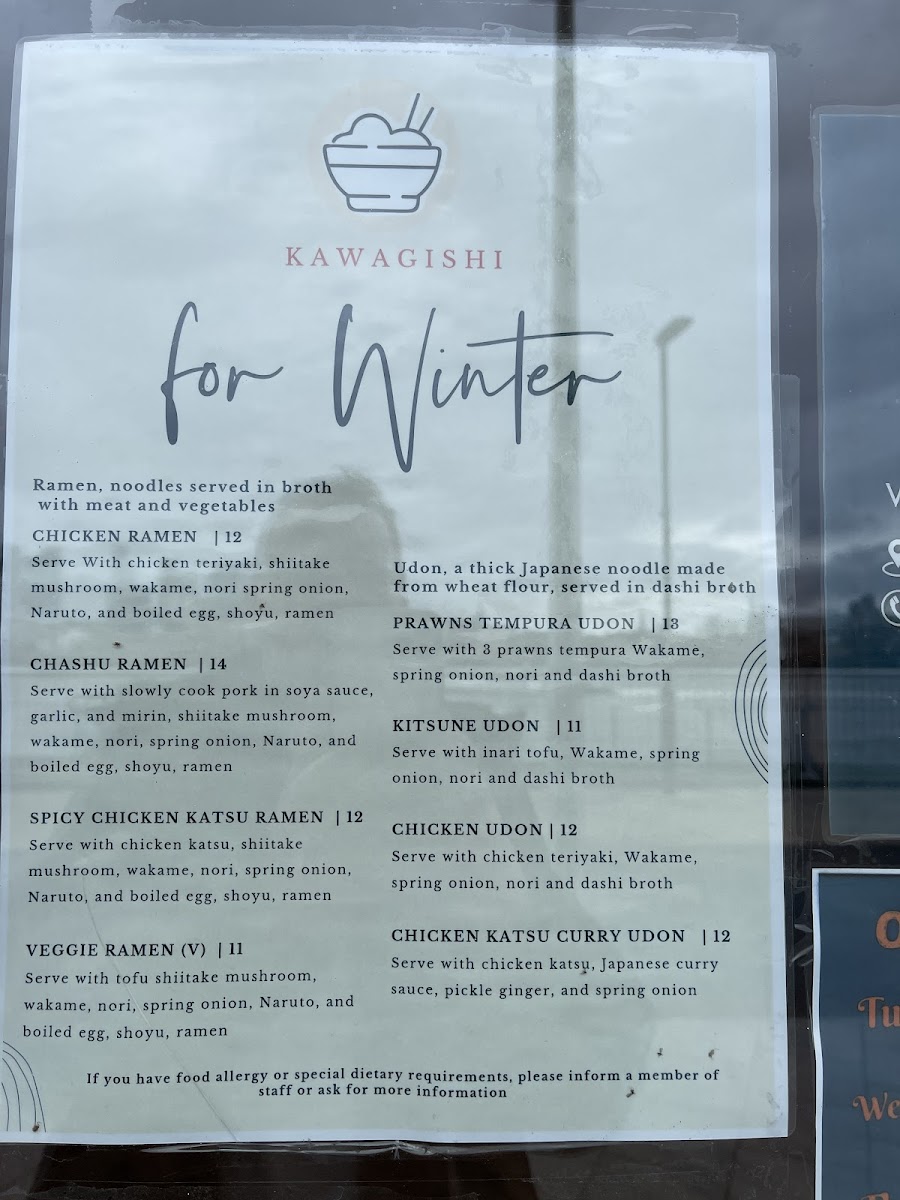 KAWAGISHI
for Winter
Ramen, noodles served in broth
with meat and vegetables
CHICKEN RAMEN | 12
Serve With chicken teriyaki, shiitake
mushroom, wakame, nori spring onion,
Naruto, and boiled egg, shoyu, ramen
CHASHU RAMEN | 14
Serve with slowly cook pork in soya sauce,
garlic, and mirin, shiitake mushroom,
wakame, nori, spring onion, Naruto, and
boiled egg, shoyu, ramen
SPICY CHICKEN KATSU RAMEN | 12
Serve with chicken katsu, shiitake
mushroom, wakame, nori, spring onion,
Naruto, and boiled egg, shoyu, ramen
VEGGIE RAMEN (V) | 11
Serve with tofu shiitake mushroom,
wakame, nori, spring onion, Naruto, and
boiled egg, shoyu, ramen
Udon, a thick Japanese noodle made
from wheat flour, served in dashi broth
PRAWNS TEMPURA UDON | 13
Serve with 3 prawns tempura Wakame,
spring onion, nori and dashi broth
KITSUNE UDON | 11
Serve with inari tofu, Wakame, spring
onion, nori and dashi broth
CHICKEN UDON | 12
Serve with chicken teriyaki, Wakame,
spring onion, nori and dashi broth
CHICKEN KATSU CURRY UDON | 12
Serve with chicken katsu, Japanese curry
sauce, pickle ginger, and spring onion
If you have food allergy or special dietary requirements, please inform a member of
staff or ask for more information
Tu
We